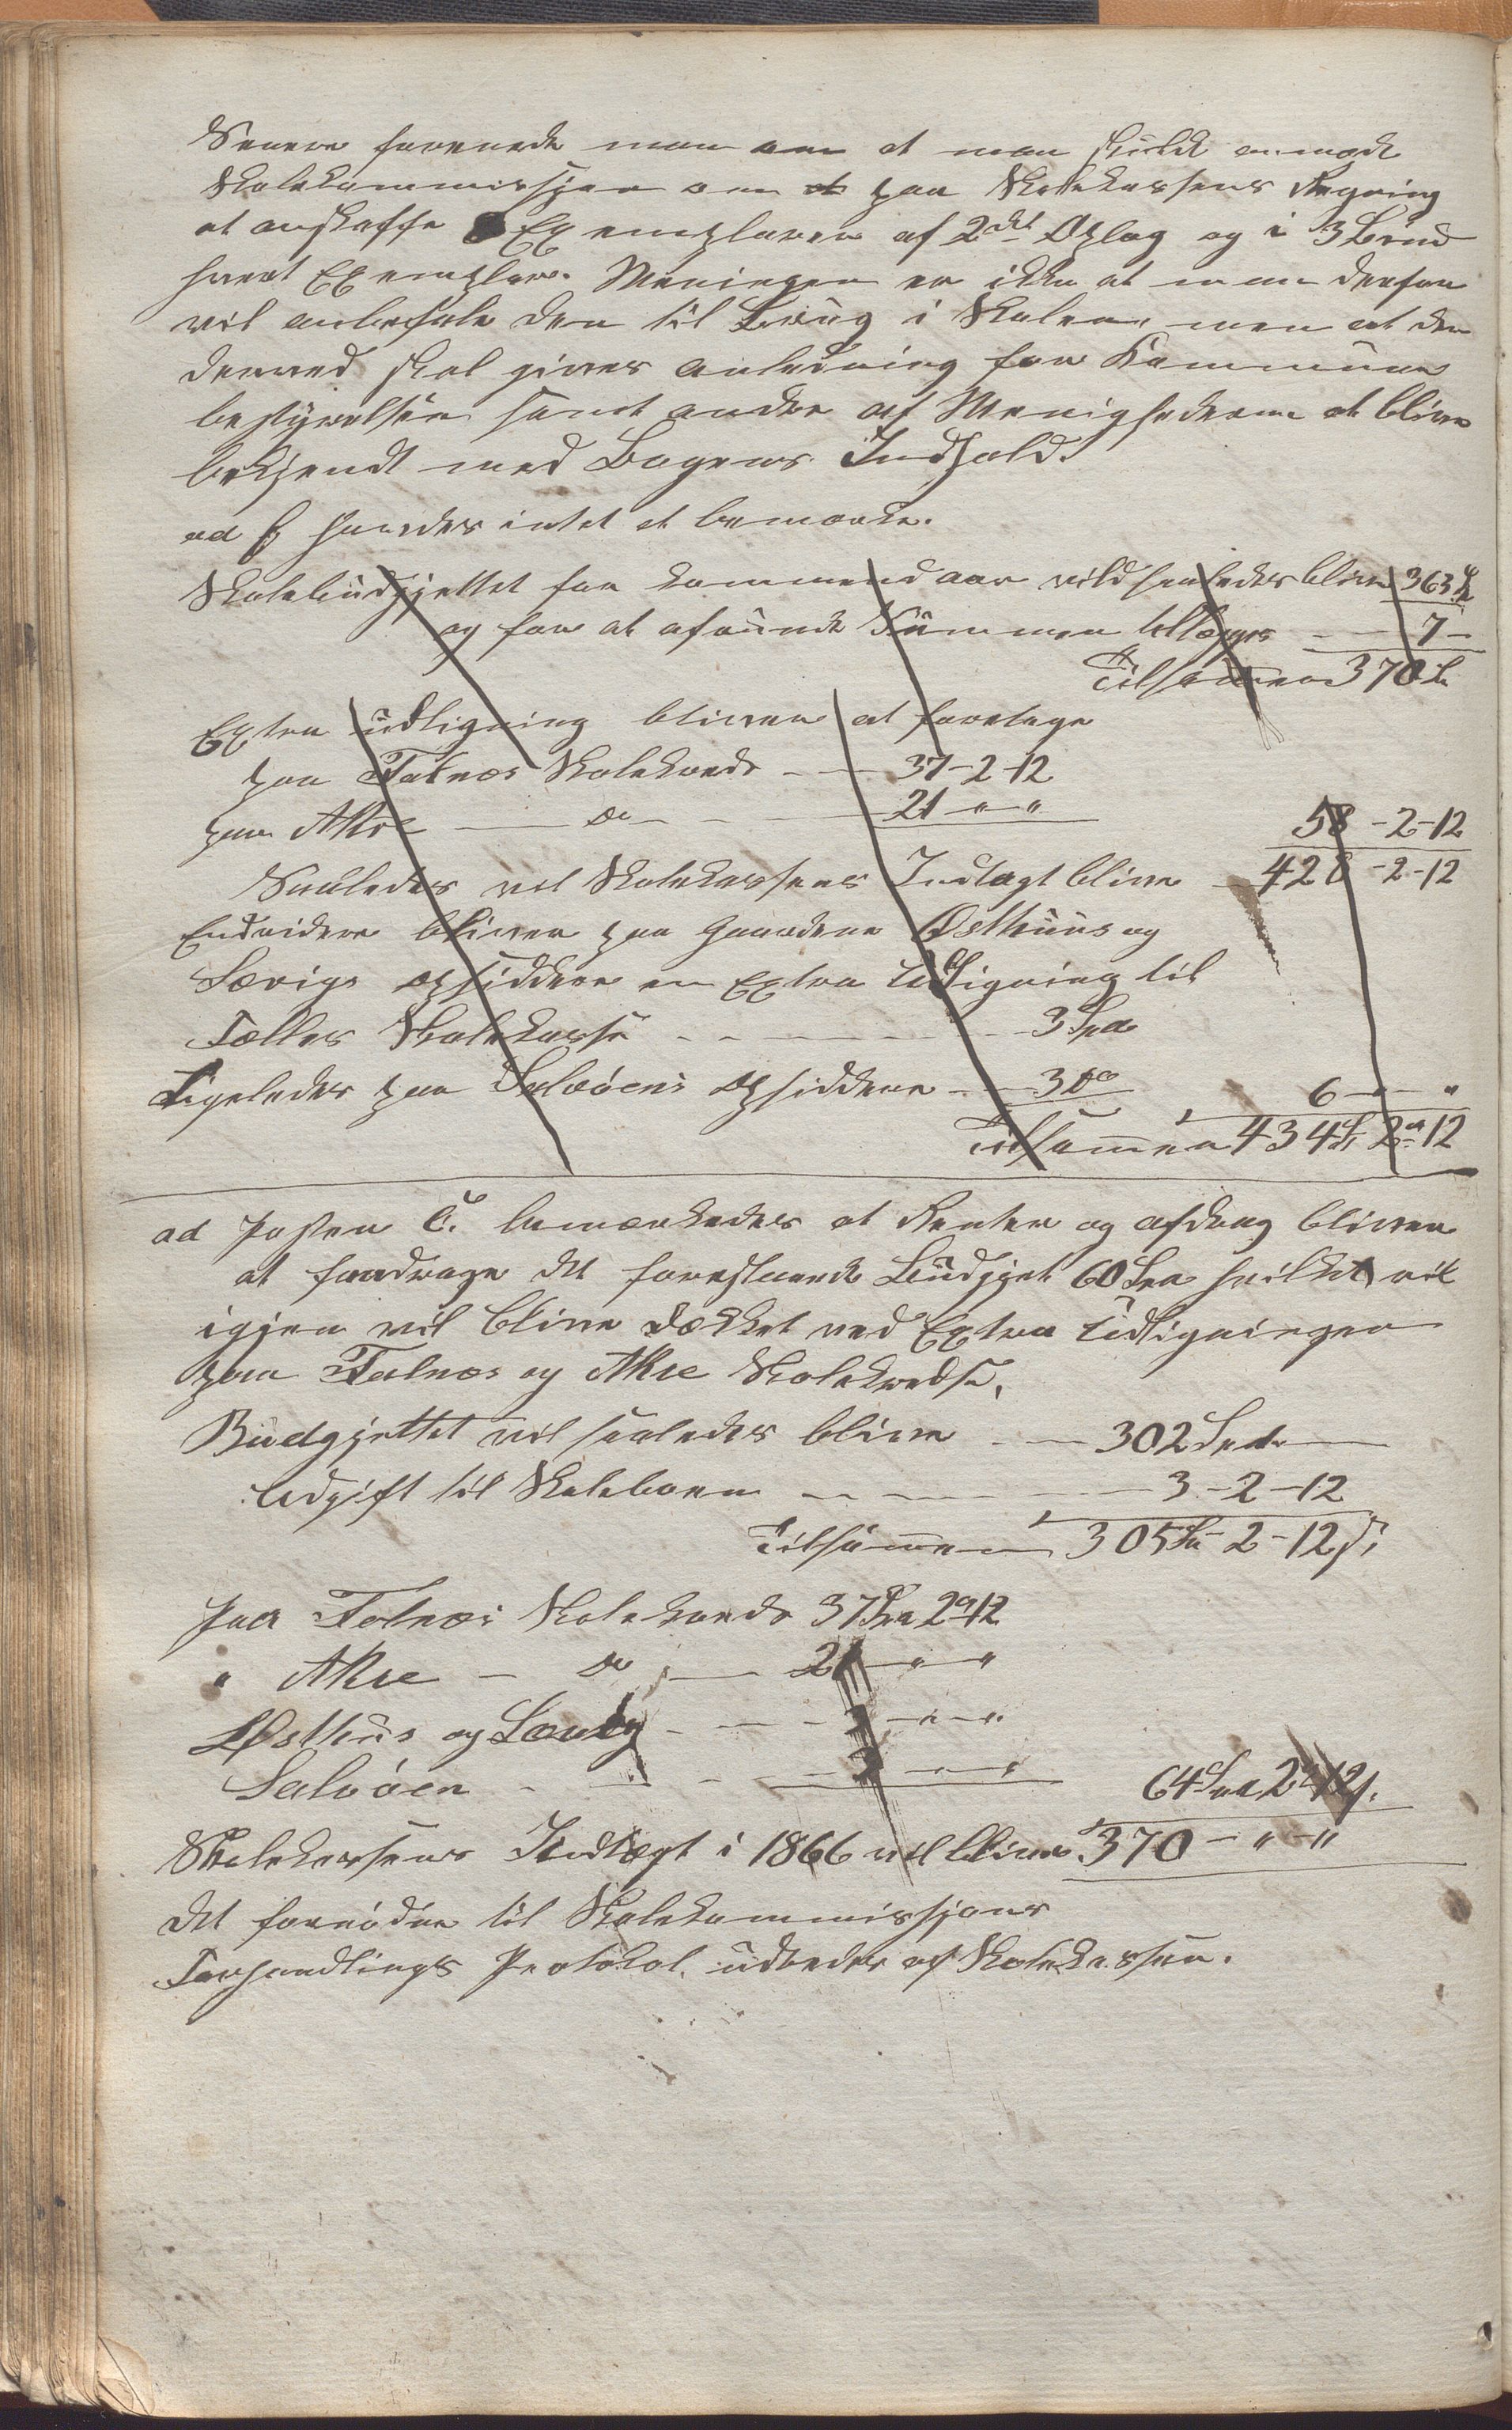 Senere forenede man om at man skulde anmode
Skolekommissjon om at paa Skolekassens Regning
at anskaffe Exemplarer af 2det Oplag og i 3 Bind
hvert Exemplar. Meningen er ikke at man derfor
vil anbefale den til Brug i Skolen, men at der
derved skal gives anledning for Kommune
bestyrelsen samt andre af Menighederne at blive
bekjendt med Bogens Indhold.
ad f havdes intet at bemærke.
Skolebudgjettet for kommend aar vild saaledes blive 363 Sp
og for at afrunde Summen tillægges - - 7 -
Tilsammen 370 Sp
Extra udligning bliver at foretage
paa Falnæs Skolekreds - - 37-2-12
paa Akre - do - - 21 " " 58 -2-12
Saaledes vil Skolekassens Indtægt blive - 428 -2-12
Endvidere bliver paa Gaardene Østhuus og
Sævigs opsiddere en Extra Udligning til
Fælles Skolekasse - - - 3 Spd
Ligeledes paa Salvøens opsiddere - 3 do 6 - "
Tilsammen 434 Sp 2 12
ad Posten C. bemærkedes at Renter og afdrag bliver
at fradrage det foreslaaede Budgjet 60 Spd hvilket vil
igjen vil blive dækket ved Extra Udligningen
paa Falnæs og Akre Skolekredse.
Budgjettet vil saaledes blive - - 302 Spd. -
Udgift til Skoleboen - - - 3 -2 -12
Tilsammen 305 Sp - 2 -12 s,
Paa Falnæs Skolekreds 37 Spd 2 12
" Akre - do - 21 " "
Østhuus og Sævig - - - 3 - " - "
Salvøen - - - 3 - " - " 64 Spd 2 12 s.
Skolekassens Indtægt i 1866 vil blive 370 - " - "
Det fornødne til Skolekommissjons
Forhandlings Protokol udredes af Skolekassen.